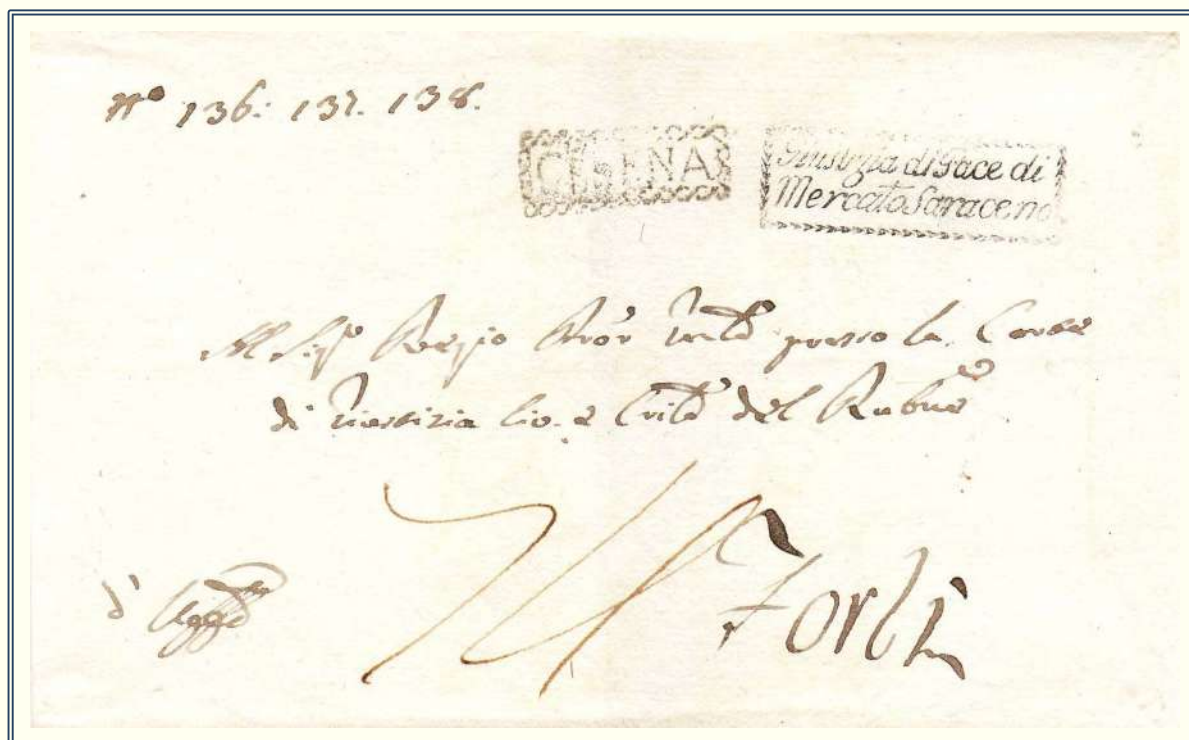 N° 136: 137. 138.
CESENA
Giustizia di Pace di
Mercato Saraceno
Al Sig.r Regio Pror presso la Corte
di Giustizia Civ. e del Rubne
d'
Forlì